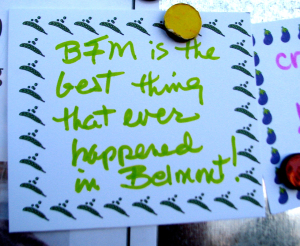 BFM is the
best thing
that ever
happened
in Belmont!